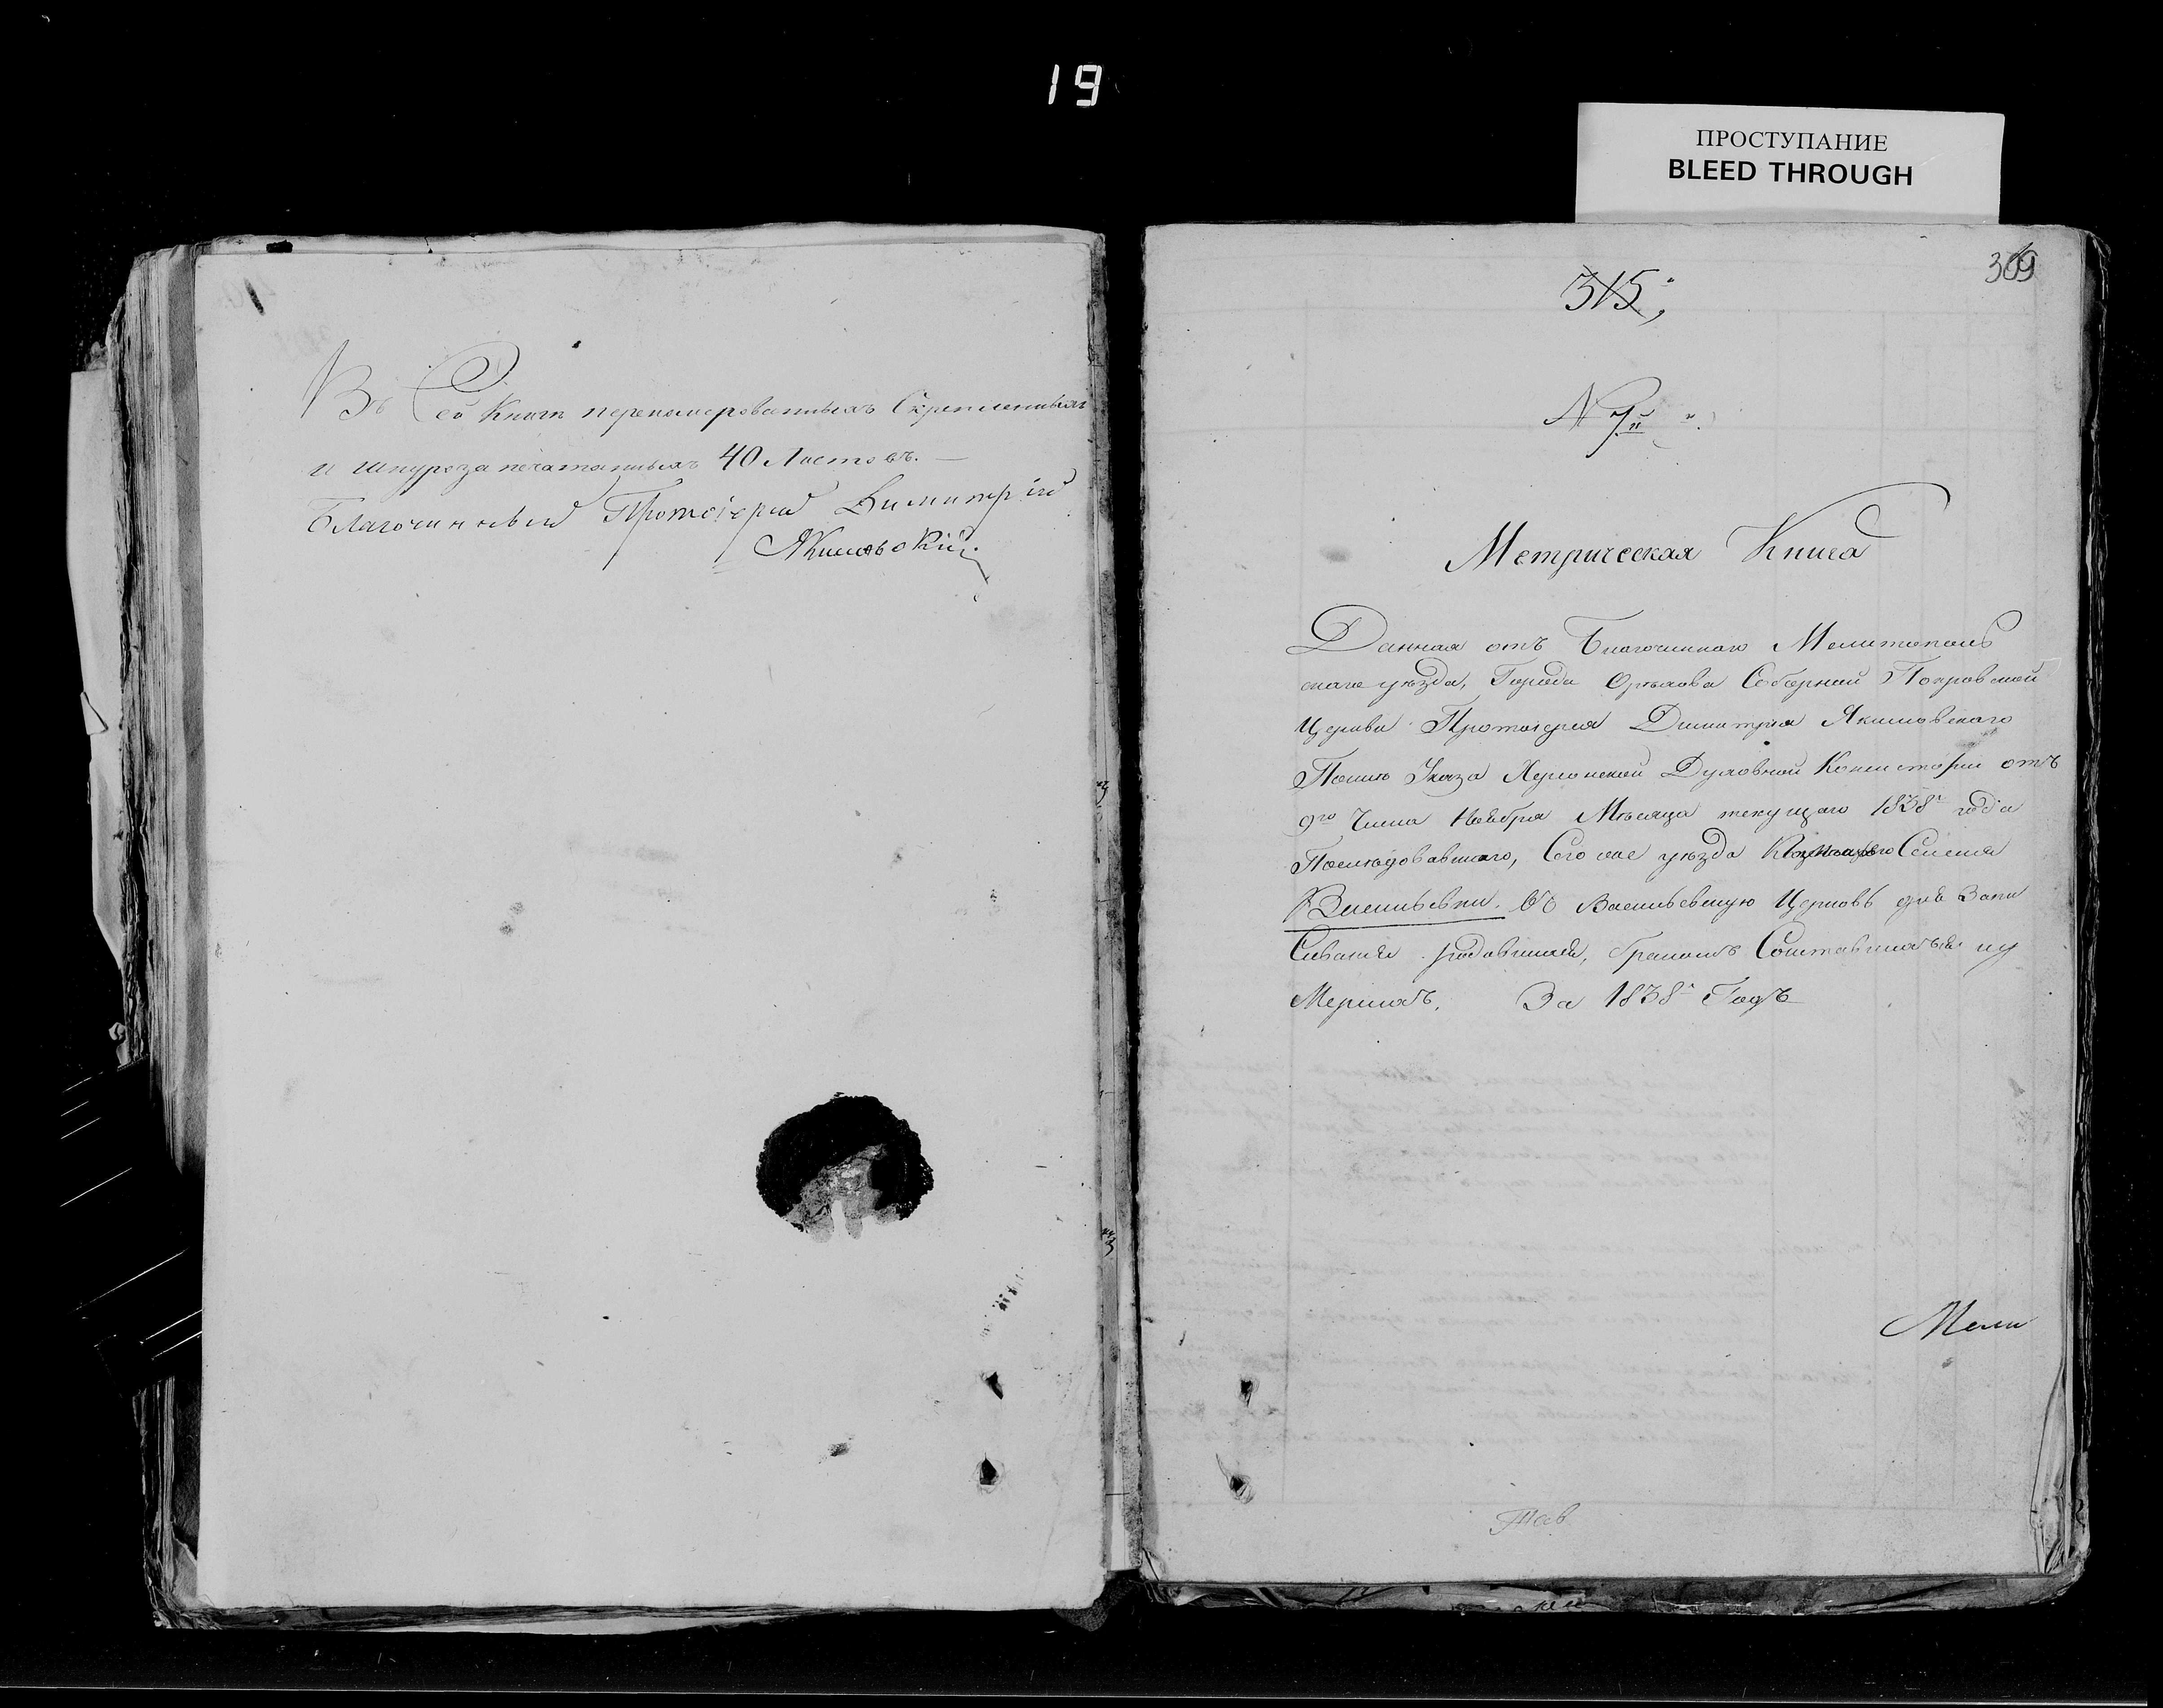 19
ПРОСТУПАНИЕ
BLEED THROUGH
Въ Сей Книги перенумерованныхъ Скрепленныхъ
и шнурозапечатанныхъ 40 Листовъ. —
Благочинный Протоіерей Димитрій
Якимовскій
309
315
N 7й
Метрическая Книга
Данная отъ Благочиннаго Мелитополь
скаго уѣзда, Города Орѣхова Соборной Покровской
Церкви Протоіерея Димитрія Якимовскаго
Указа Херсонской Духовной Консисторіи отъ
9го Числа Ноября Мѣсяца текущаго 1838 года
Послѣдовавшаго, Того же уѣзда Селенія
Васильевки. Въ Васильевскую Церковь для Запи
Сыванія родившихся, бракомъ Сочетавшихся и у
Мершихъ. За 1838 Годъ
Мели
Тав